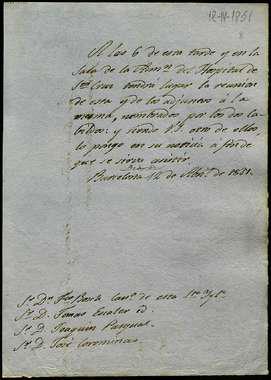 12-IV-1851
A las 6 de esta tarde y en la
Sala de la Admon. del Hospital de
Sta. Cruz tendrá lugar la reunion
de esta y de los adjuntos á la
misma, nombrados por los dos Ca-
bildos: y siendo V.S. otro de ellos,
lo pongo en su noticia á fin de
que se sirva asistir.
Barcelona 12 de Abril de 1851.
Sr. Dn. 
Sr. D. Tomas
Sr. D. Joaquin Pasqual.
Sr. D. José Corominas